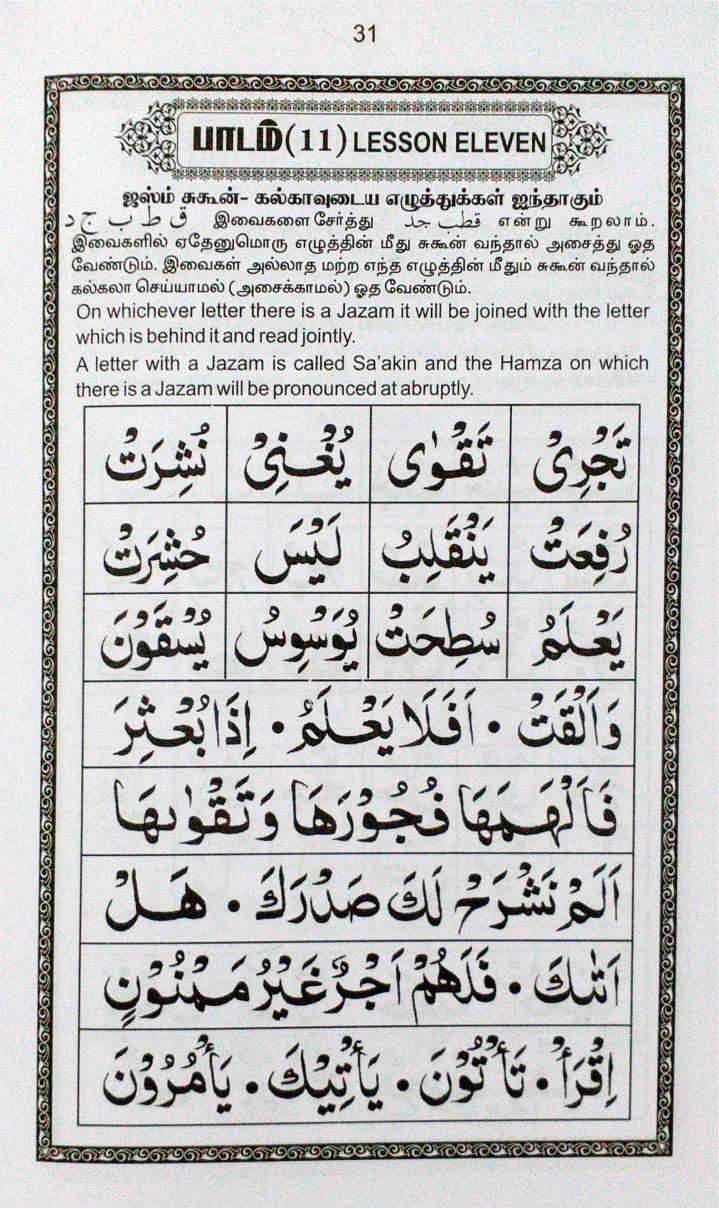 31
பாடம் (11) LESSON ELEVEN
ஜஸ்ம் சுகூன்- கல்காவுடைய எழுத்துக்கள் ஐந்தாகும்
ق ط ب ج د இவைகளை சேர்த்து قطب جد என்று கூறலாம்.
இவைகளில் ஏதேனுமொரு எழுத்தின் மீது சுகூன் வந்தால் அசைத்து ஓத
வேண்டும். இவைகள் அல்லாத மற்ற எந்த எழுத்தின் மீதும் சுகூன் வந்தால்
கல்கலா செய்யாமல் (அசைக்காமல்) ஓத வேண்டும்.
On whichever letter there is a Jazam it will be joined with the letter
which is behind it and read jointly.
A letter with a Jazam is called Sa'akin and the Hamza on which
there is a Jazam will be pronounced at abruptly.
تَجْرِىْ تَقْوٰى يُغْنِىْ نُشِرَتْ
رُفِعَتْ يَنْقَلِبُ لَيْسَ حُشِرَتْ
يَعْلَمُ سُطِحَتْ يُوَسْوِسُ يُسْقَوْنَ
وَاَلْقَتْ • اَفَلَا يَعْلَمُ • اِذَا بُعْثِرَ
فَاَلْهَمَهَا فُجُوْرَهَا وَتَقْوٰىهَا
اَلَمْ نَشْرَحْ لَكَ صَدْرَكَ • هَلْ
اَتٰىكَ • فَلَهُمْ اَجْرٌ غَيْرُ مَمْنُوْنٍ
اِقْرَأْ • تَأْتُوْنَ • يَأْتِيْكَ • يَأْمُرُوْنَ